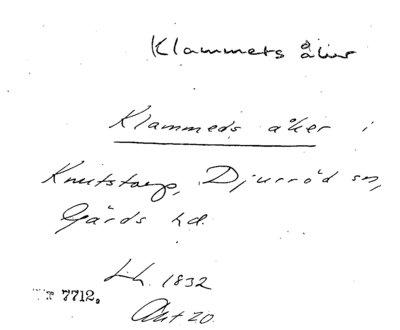 Klammets åker
Klammeds åker i
Knutstorp, Djurröd sn,
Gärds hd.
L.h. 1832
Akt 20.
7712.